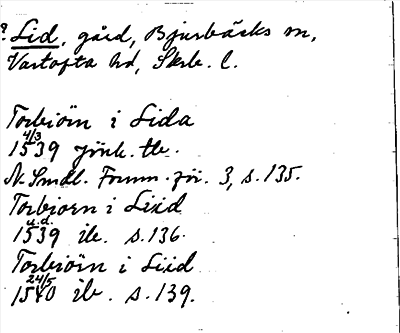 ? Lid, gård, Bjurbäcks sn,
Vartofta hd, Skrb. l.
Torbiörn i Lida
4/3
1539 Jönk. tb.
N. Smål. Fornm. för. 3, s. 135.
Torbjorn i Liid
u.d.
1539 ib. s. 136.
Torbiörn i Liid
24/5
1540 ib. s. 139.